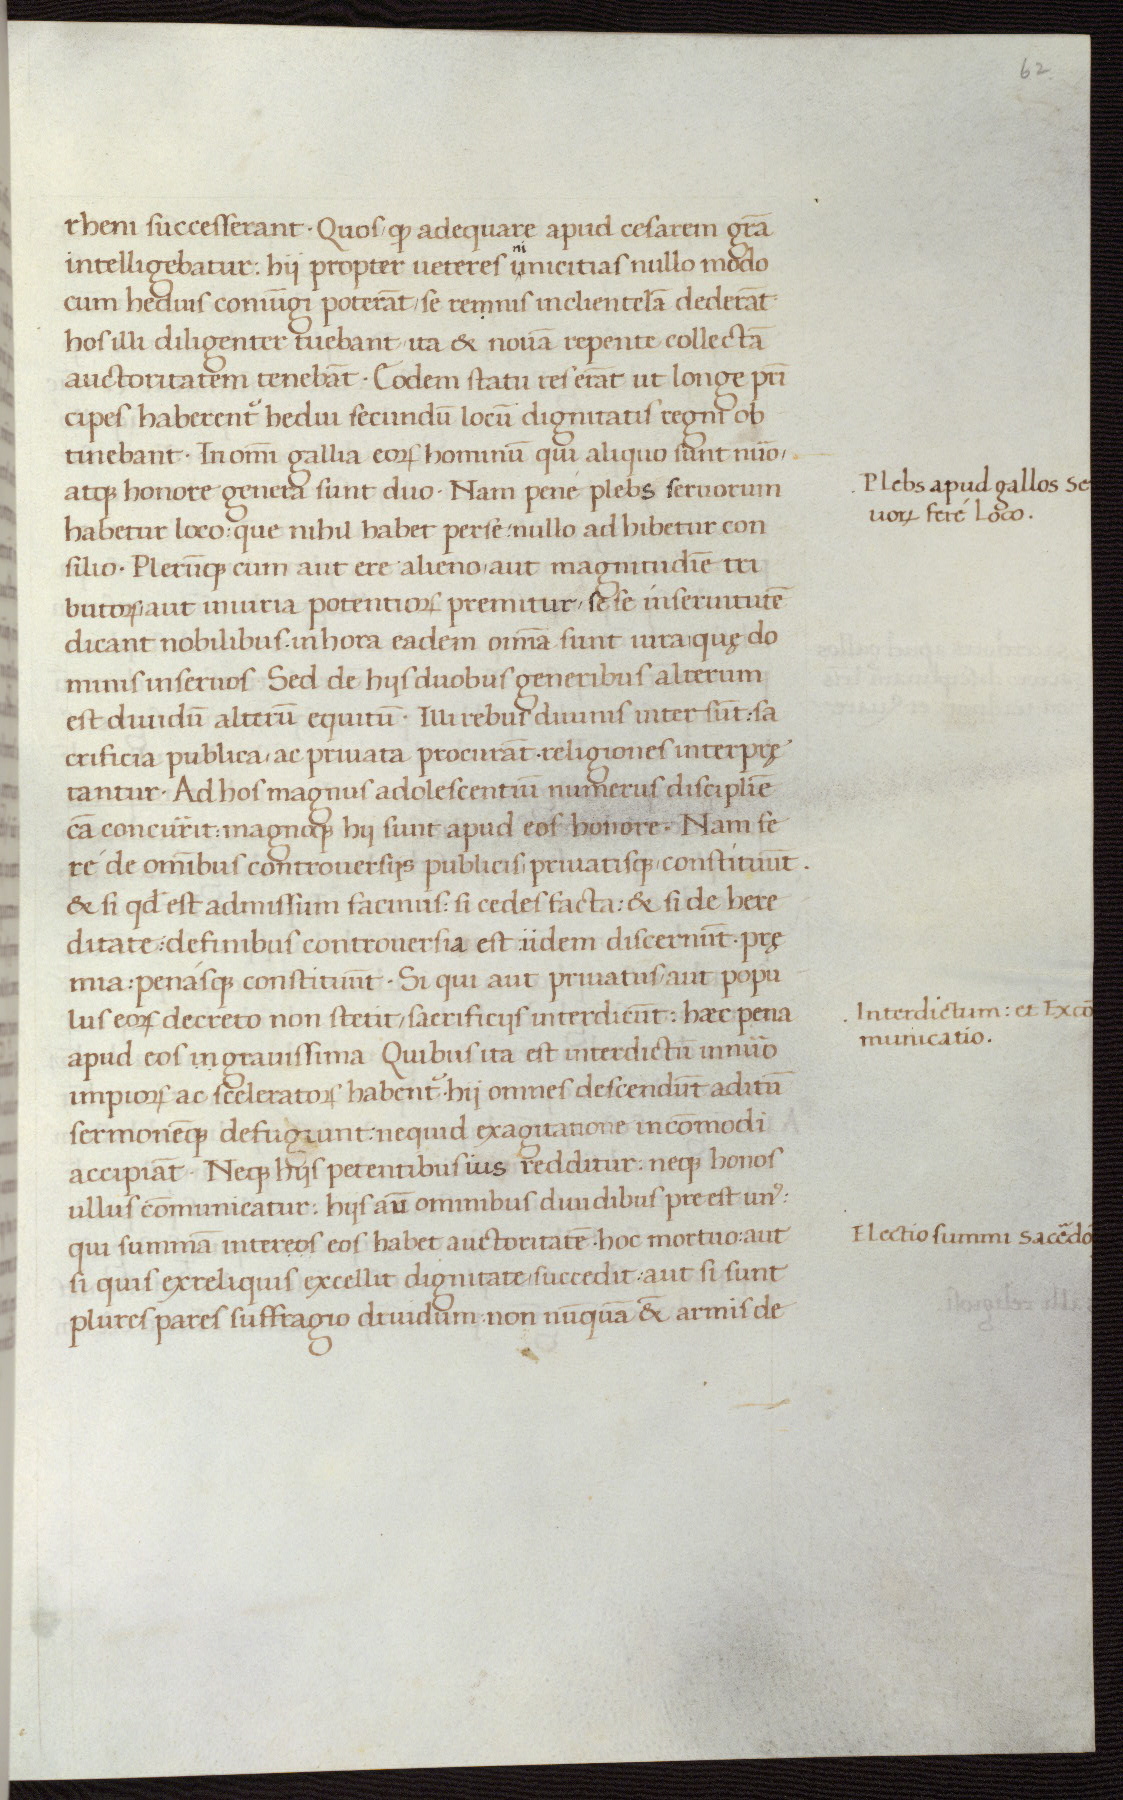 62
rheni successerant · Quos, qꝫ adequare apud cesarem gr̄a
intelligebatur: hij propter ueteres inimicitias nullo modo
cum heduis coniūgi poterāt, se remnis inclientelā dederāt
hos illi diligenter tuebant ita & nouā repente collectā
auctoritatem tenebāt · Eodem statu res erāt ut longe prī
cipes haberent᷑ hedui secundū locū dignitatis regni ob
tinebant · In om̄i gallia eoꝝ hominū qui aliquo sunt nūo,
atqꝫ honore genera sunt duo · Nam pene plebs seruorum
habetur loco: que nihil habet perse: nullo adhibetur con
silio · Pleru̅qꝫ cum aut ere alieno, aut magnitudīe tri
butoꝝ, aut iniuria potentioꝝ premitur, se se inseruitutē
dicant nobilibus · inhora eadem om̄a sunt iura, quę do
minis inseruos Sed de hijs duobus generibus alterum
est diuidū alterū equitū · Illi rebus diuinis inter sūt: sa
crificia publica, ac priuata procurāt · religiones interprę
tantur · Ad hos magnus adolescentiū numerus disciplīe
cā concurrit: magnoqꝫ hij sunt apud eos honore · Nam fe
re de om̄ibus controuersijs publicis, priuatisqꝫ, constituūt ·
& si qd̄ est admissum facinus: si cedes facta: & si de here
ditate: definibus controuersia est iidem discernūt · prę
mia: penasqꝫ constituūt · Si qui aut priuatus, aut popu
lus eoꝝ decreto non stetit, sacrificijs interdicūt: hæc pena
apud eos ingrauissima Quibus ita est interdictū innūo
impioꝝ ac sceleratoꝝ habent᷑ · hij omnes descendūt aditū
sermonēqꝫ defugiunt: nequid exagitatione incōmodi
accipiāt · Neqꝫ hijs petentibus ius redditur: neqꝫ honos
ullus cōmunicatur: hijs aū omnibus diuidibus pre est unꝰ:
qui summā intereos eos habet auctoritatē · hoc mortuo: aut
si quis exreliquis excellit dignitate, succedit: aut si sunt
plures pares suffragio diuidum · non nūquā &̄ armis de
Plebs apud gallos se
uoꝝ fere Loco.
Interdictum: et Excō
municatio.
Electio summi sacēdo